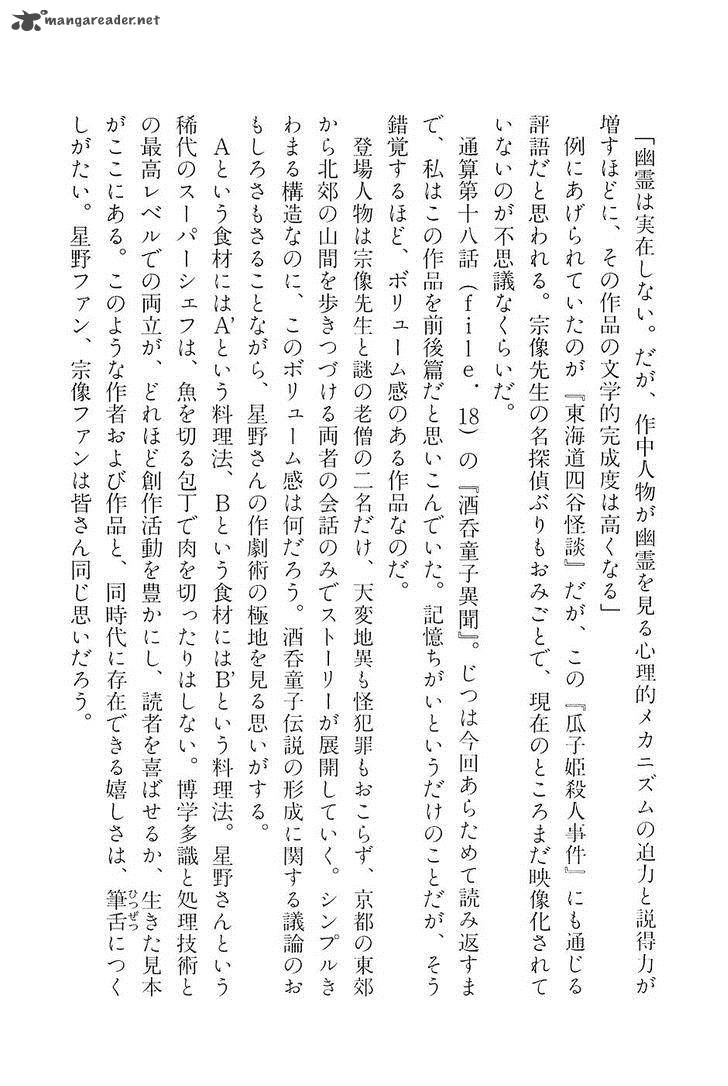 mangareader.net
「幽霊は実在しない。だが、作中人物が幽霊を見る心理的メカニズムの迫力と説得力が
増すほどに、その作品の文学的完成度は高くなる」
例にあげられていたのが『東海道四谷怪談』だが、この『瓜子姫殺人事件』にも通じる
評語だと思われる。宗像先生の名探偵ぶりもおみごとで、現在のところまだ映像化されて
いないのが不思議なくらいだ。
通算第十八話（file．18）の『酒呑童子異聞』。じつは今回あらためて読み返すま
で、私はこの作品を前後篇だと思いこんでいた。記憶ちがいというだけのことだが、そう
錯覚するほど、ボリューム感のある作品なのだ。
登場人物は宗像先生と謎の老僧の二名だけ、天変地異も怪犯罪もおこらず、京都の東郊
から北郊の山間を歩きつづける両者の会話のみでストーリーが展開していく。シンプルき
わまる構造なのに、このボリューム感は何だろう。酒呑童子伝説の形成に関する議論のお
もしろさもさることながら、星野さんの作劇術の極地を見る思いがする。
Aという食材にはA'という料理法、Bという食材にはB'という料理法。星野さんという
稀代のスーパーシェフは、魚を切る包丁で肉を切ったりはしない。博学多識と処理技術と
の最高レベルでの両立が、どれほど創作活動を豊かにし、読者を喜ばせるか、生きた見本
がここにある。このような作者および作品と、同時代に存在できる嬉しさは、筆舌につく
ひつぜつ
しがたい。星野ファン、宗像ファンは皆さん同じ思いだろう。